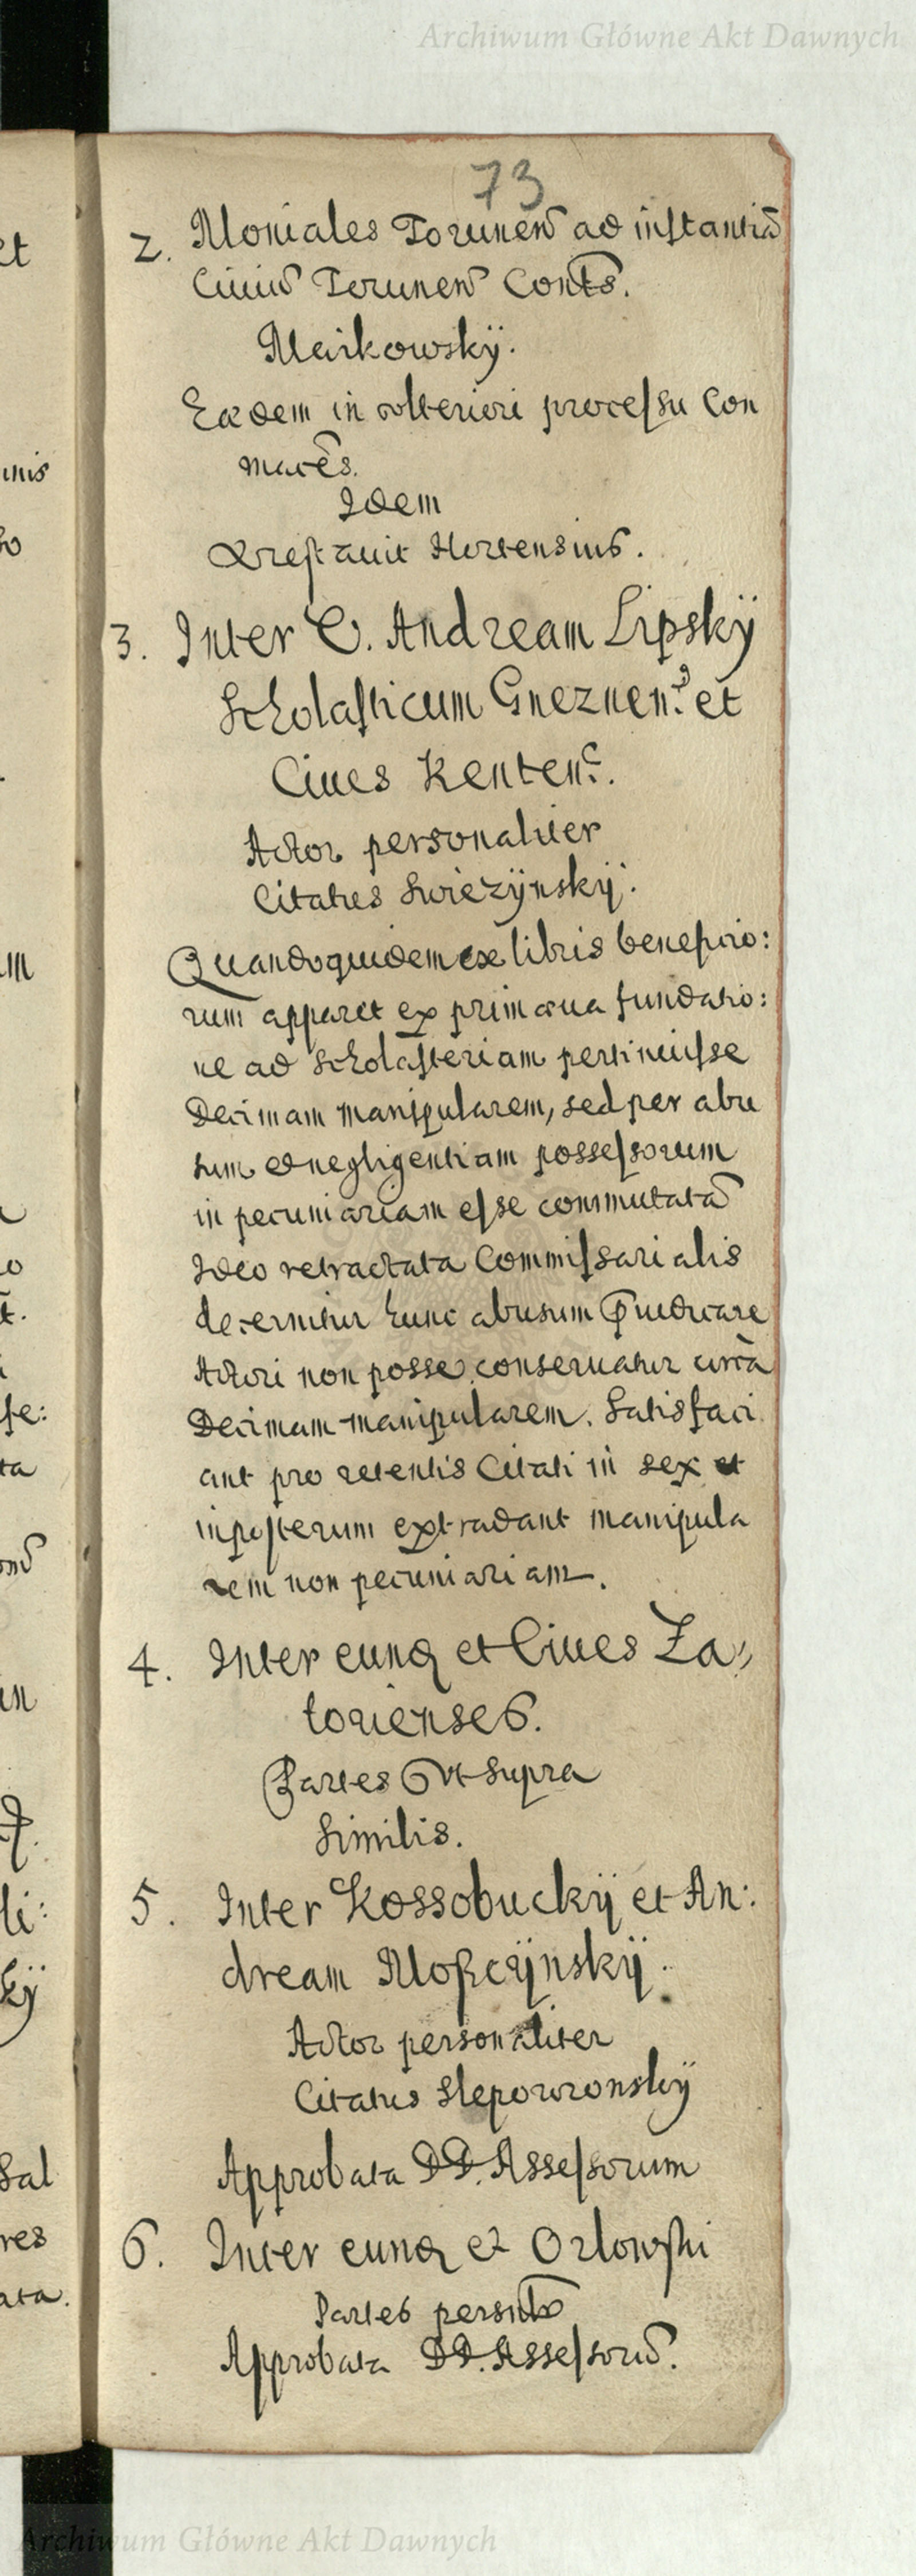 Archiwum Główne Akt Dawnych
73
2. Moniales Toruneñ ad instantiã
Ciuiũ Toruneñ Conts.
Maikowskÿ.
Eædem in vlteriori processu Con
maces.
Idem
Arestauit Hortensius.
3. Inter V. Andream Lipskÿ
Scholasticum Gneznen: et
Ciues Kenten:.
Actor personaliter
Citatus Swiezÿnskÿ.
Quandoquidem ex libris beneficio:
rum apparet ex primæua fundatio:
ne ad Scholasteriam pertinuisse
Decimam manipularem, sed per abu
sum et negligentiam possessorum
in pecuniariam esse commutatã
Ideo retractata Commissarialis
decernitur hunc abusum Præiudicare
Actori non posse. conseruatur circà
Decimam manipularem. Satisfaci
ant pro retentis Citati in sex et
inposterum extradant manipula
rem non pecuniariam.
4. Inter eunq et Ciues Za,
torienses.
Partes Vt supra
Similis.
5. Inter Kossobuckÿ et An:
dream Moszcÿnskÿ.
Actor personaliter
Citatus Slepowronskÿ
Approbata DD. Assessorum
6. Inter eunq et Orlowski
Partes
Approbata DD. Assessorũ.
Archiwum Główne Akt Dawnych